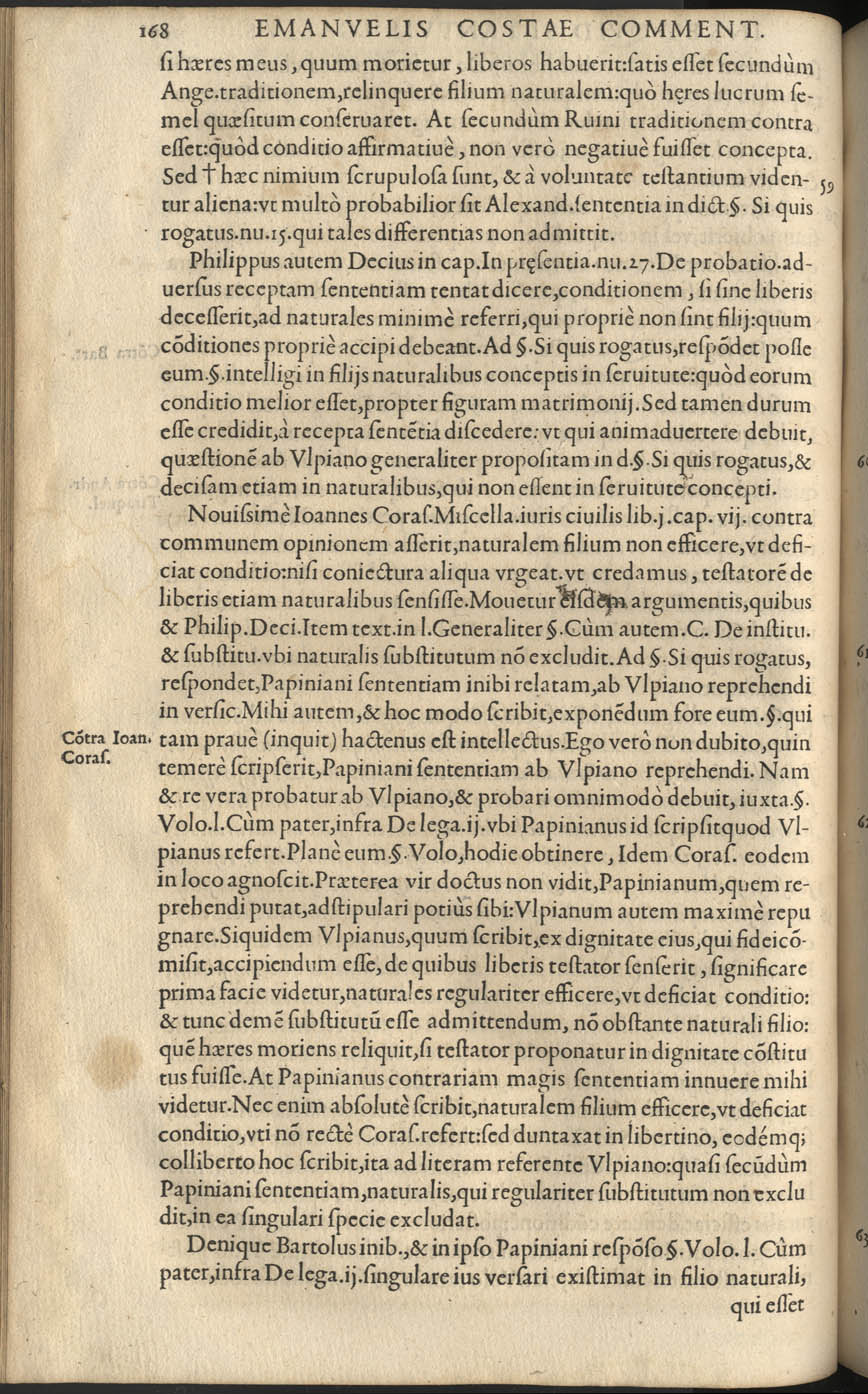 168 EMANVELIS COSTAE COMMENT.
ſi hæres meus, quum morietur, liberos habuerit:ſatis eſſet ſecundùm
Ange.traditionem,relinquere filium naturalem:quò hęres lucrum ſe-
mel quæſitum conſeruaret. At ſecundùm Ruini traditionem contra
eſſet:q̃uòd conditio affirmatiuè, non verò negatiuè fuiſſet concepta.
Sed † hæc nimium ſcrupuloſa ſunt, & à voluntate teſtantium viden- 59
tur aliena:vt multò probabilior ſit Alexand.ſententia in dict.§. Si quis
rogatus.nu.15.qui tales differentias non admittit.
Philippus autem Decius in cap.In pręſentia.nu.27.De probatio.ad-
uerſus receptam ſententiam tentat dicere,conditionem, ſi ſine liberis
deceſſerit,ad naturales minimè referri,qui propriè non ſint filij:quum
cōditiones propriè accipi debeant.Ad §.Si quis rogatus,reſpōdet poſſe
eum.§.intelligi in filijs naturalibus conceptis in ſeruitute:quòd eorum
conditio melior eſſet,propter figuram matrimonij.Sed tamen durum
eſſe credidit,à recepta ſentētia diſcedere:vt qui animaduertere debuit,
quæſtionē ab Vlpiano generaliter propoſitam in d.§.Si quis rogatus,&
deciſam etiam in naturalibus,qui non eſſent in ſeruitute concepti.
Nouiſsimè Ioannes Coraſ.Miſcella.iuris ciuilis lib.j.cap. vij. contra
communem opinionem aſſerit,naturalem filium non efficere,vt defi-
ciat conditio:niſi coniectura aliqua vrgeat.vt credamus, teſtatorē de
liberis etiam naturalibus ſenſiſſe.Mouetur eiſdem argumentis,quibus
& Philip.Deci.Item text.in l.Generaliter §.Cùm autem.C. De inſtitu.
& ſubſtitu.vbi naturalis ſubſtitutum nō excludit.Ad §.Si quis rogatus,
reſpondet,Papiniani ſententiam inibi relatam,ab Vlpiano reprehendi
in verſic.Mihi autem,& hoc modo ſcribit,exponēdum fore eum.§.qui
Cōtra Ioan. tam prauè (inquit) hactenus eſt intellectus.Ego verò non dubito,quin
Coraſ. temerè ſcripſerit,Papiniani ſententiam ab Vlpiano reprehendi. Nam
& re vera probatur ab Vlpiano,& probari omnimodò debuit, iuxta.§.
Volo.l.Cùm pater,infra De lega.ij.vbi Papinianus id ſcripſitquod Vl-
pianus refert.Planè eum.§.Volo,hodie obtinere, Idem Coraſ. eodem
in loco agnoſcit.Præterea vir doctus non vidit,Papinianum,quem re-
prehendi putat,adſtipulari potiùs ſibi:Vlpianum autem maximè repu
gnare.Siquidem Vlpianus,quum ſcribit,ex dignitate eius,qui fideicō-
miſit,accipiendum eſſe, de quibus liberis teſtator ſenſerit, ſignificare
prima facie videtur,naturales regulariter efficere,vt deficiat conditio:
& tunc demē ſubſtitutū eſſe admittendum, nō obſtante naturali filio:
quē hæres moriens reliquit,ſi teſtator proponatur in dignitate cōſtitu
tus fuiſſe.At Papinianus contrariam magis ſententiam innuere mihi
videtur.Nec enim abſolutè ſcribit,naturalem filium efficere,vt deficiat
conditio,vti nō rectè Coraſ.refert:ſed duntaxat in libertino, eodémq;
colliberto hoc ſcribit,ita ad literam referente Vlpiano:quaſi ſecūdùm
Papiniani ſententiam,naturalis,qui regulariter ſubſtitutum non exclu
dit,in ea ſingulari ſpecie excludat.
Denique Bartolus inib.,& in ipſo Papiniani reſpōſo §.Volo. l. Cùm
pater,infra De lega.ij.ſingulare ius verſari exiſtimat in filio naturali,
qui eſſet